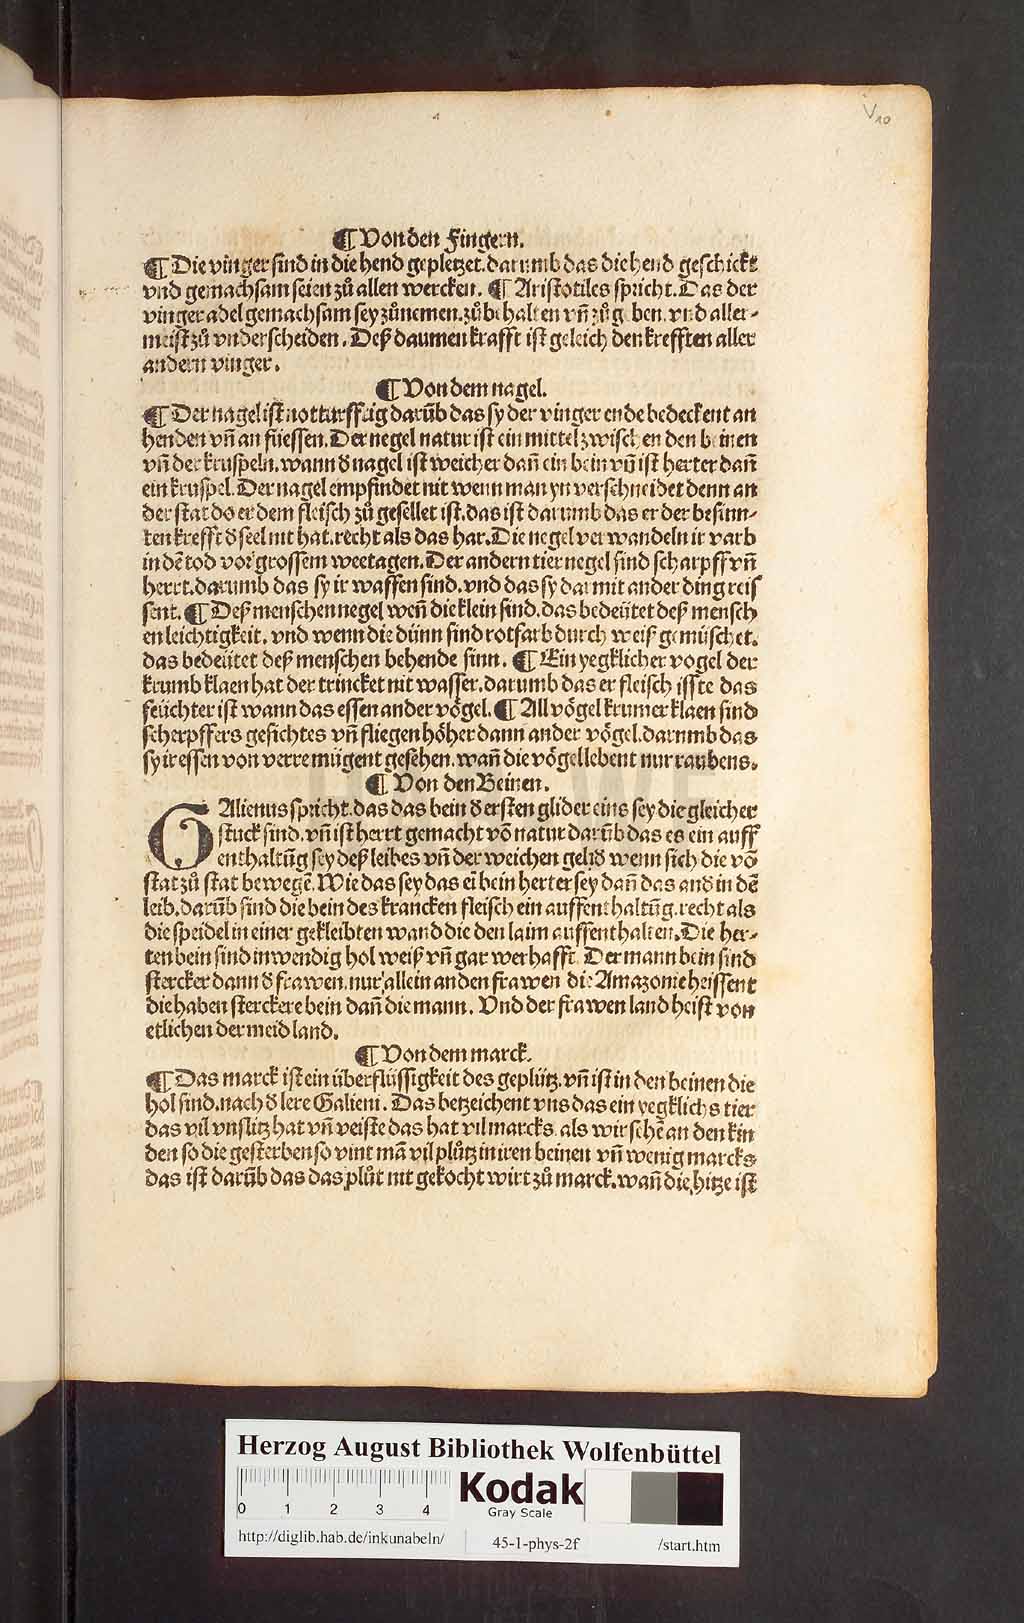 V 10
¶ Von den Fingern.
¶ Die vinger sind in die hend gepletzet. darumb das die hend geschickt
vnd gemachsam seien zů allen wercken. ¶ Aristotiles spricht. Das der
vinger adel gemachsam sey zůnemen. zů behalten vñ zů geben. vnd aller-
meist zů vnderscheiden. Deß daumen krafft ist geleich den krefften aller
andern vinger.
¶ Von dem nagel.
¶ Der nagel ist notturfftig darũb das sy der vinger ende bedeckent an
henden vñ an füessen. Der negel natur ist ein mittel zwischen den beinen
vñ der kruspeln. wann d̕ nagel ist weicher dañ ein bein vñ ist herter dañ
ein kruspel. Der nagel empfindet nit wenn man yn verschneidet denn an
der stat do er dem fleisch zů gesellet ist. das ist darumb das er der besinn-
ten krefft d̕ seel nit hat. recht als das har. Die negel verwandeln ir varb
in dẽ tod vor grossem weetagen. Der andern tier negel sind scharpff vñ
herrt. darumb das sy ir waffen sind. vnd das sy darmit ander ding reis
sent. ¶ Deß menschen negel weñ die klein sind. das bedeütet deß mensch
en leichtigkeit. vnd wenn die dünn sind rotfarb durch weiß gemüschet.
das bedeütet deß menschen behende sinn. ¶ Ein yegklicher vogel der
krumb klaen hat der trincket nit wasser. darumb das er fleisch isste das
feüchter ist wann das essen ander vögel. ¶ All vögel krumer klaen sind
scherpffers gesichtes vñ fliegen höher dann ander vögel. darumb das
sy ir essen von verre mügent gesehen. wañ die vögel lebent nur raubens.
¶ Von den Beinen.
GAlienus spricht. das das bein d̕ ersten glider eins sey die gleicher
stuck sind. vñ ist herrt gemacht võ natur darũb das es ein auff
enthaltũg sey deß leibes vñ der weichen gelid̕ wenn sich die võ
stat zů stat bewegẽ. Wie das sey das eĩ bein herter sey dañ das and̕ in dẽ
leib. darũb sind die bein des krancken fleisch ein auffenthaltũg. recht als
die speidel in einer gekleibten wand die den laim auffenthalten. Die her-
ten bein sind inwendig hol weiß vñ gar werhafft. Der mann bein sind
stercker dann d̕ frawen. nur allein an den frawen die Amazonie heissent
die haben sterckere bein dañ die mann. Vnd der frawen land heist von
etlichen der meid land.
¶ Von dem marck.
¶ Das marck ist ein überflüssigkeit des geplütz. vñ ist in den beinen die
hol sind. nach d̕ lere Galieni. Das betzeichent vns das ein yegklichs tier
das vil vnslitz hat vñ veiste das hat vil marcks. als wir sehẽ an den kin
den so die gesterben so vint mã vil plůtz in iren beinen vñ wenig marcks
das ist darũb das das plůt nit gekocht wirt zů marck. wañ die hitze ist
Herzog August Bibliothek Wolfenbüttel
0 1 2 3 4
Kodak
Gray Scale
http://diglib.hab.de/inkunabeln/ 45-1-phys-2f /start.htm